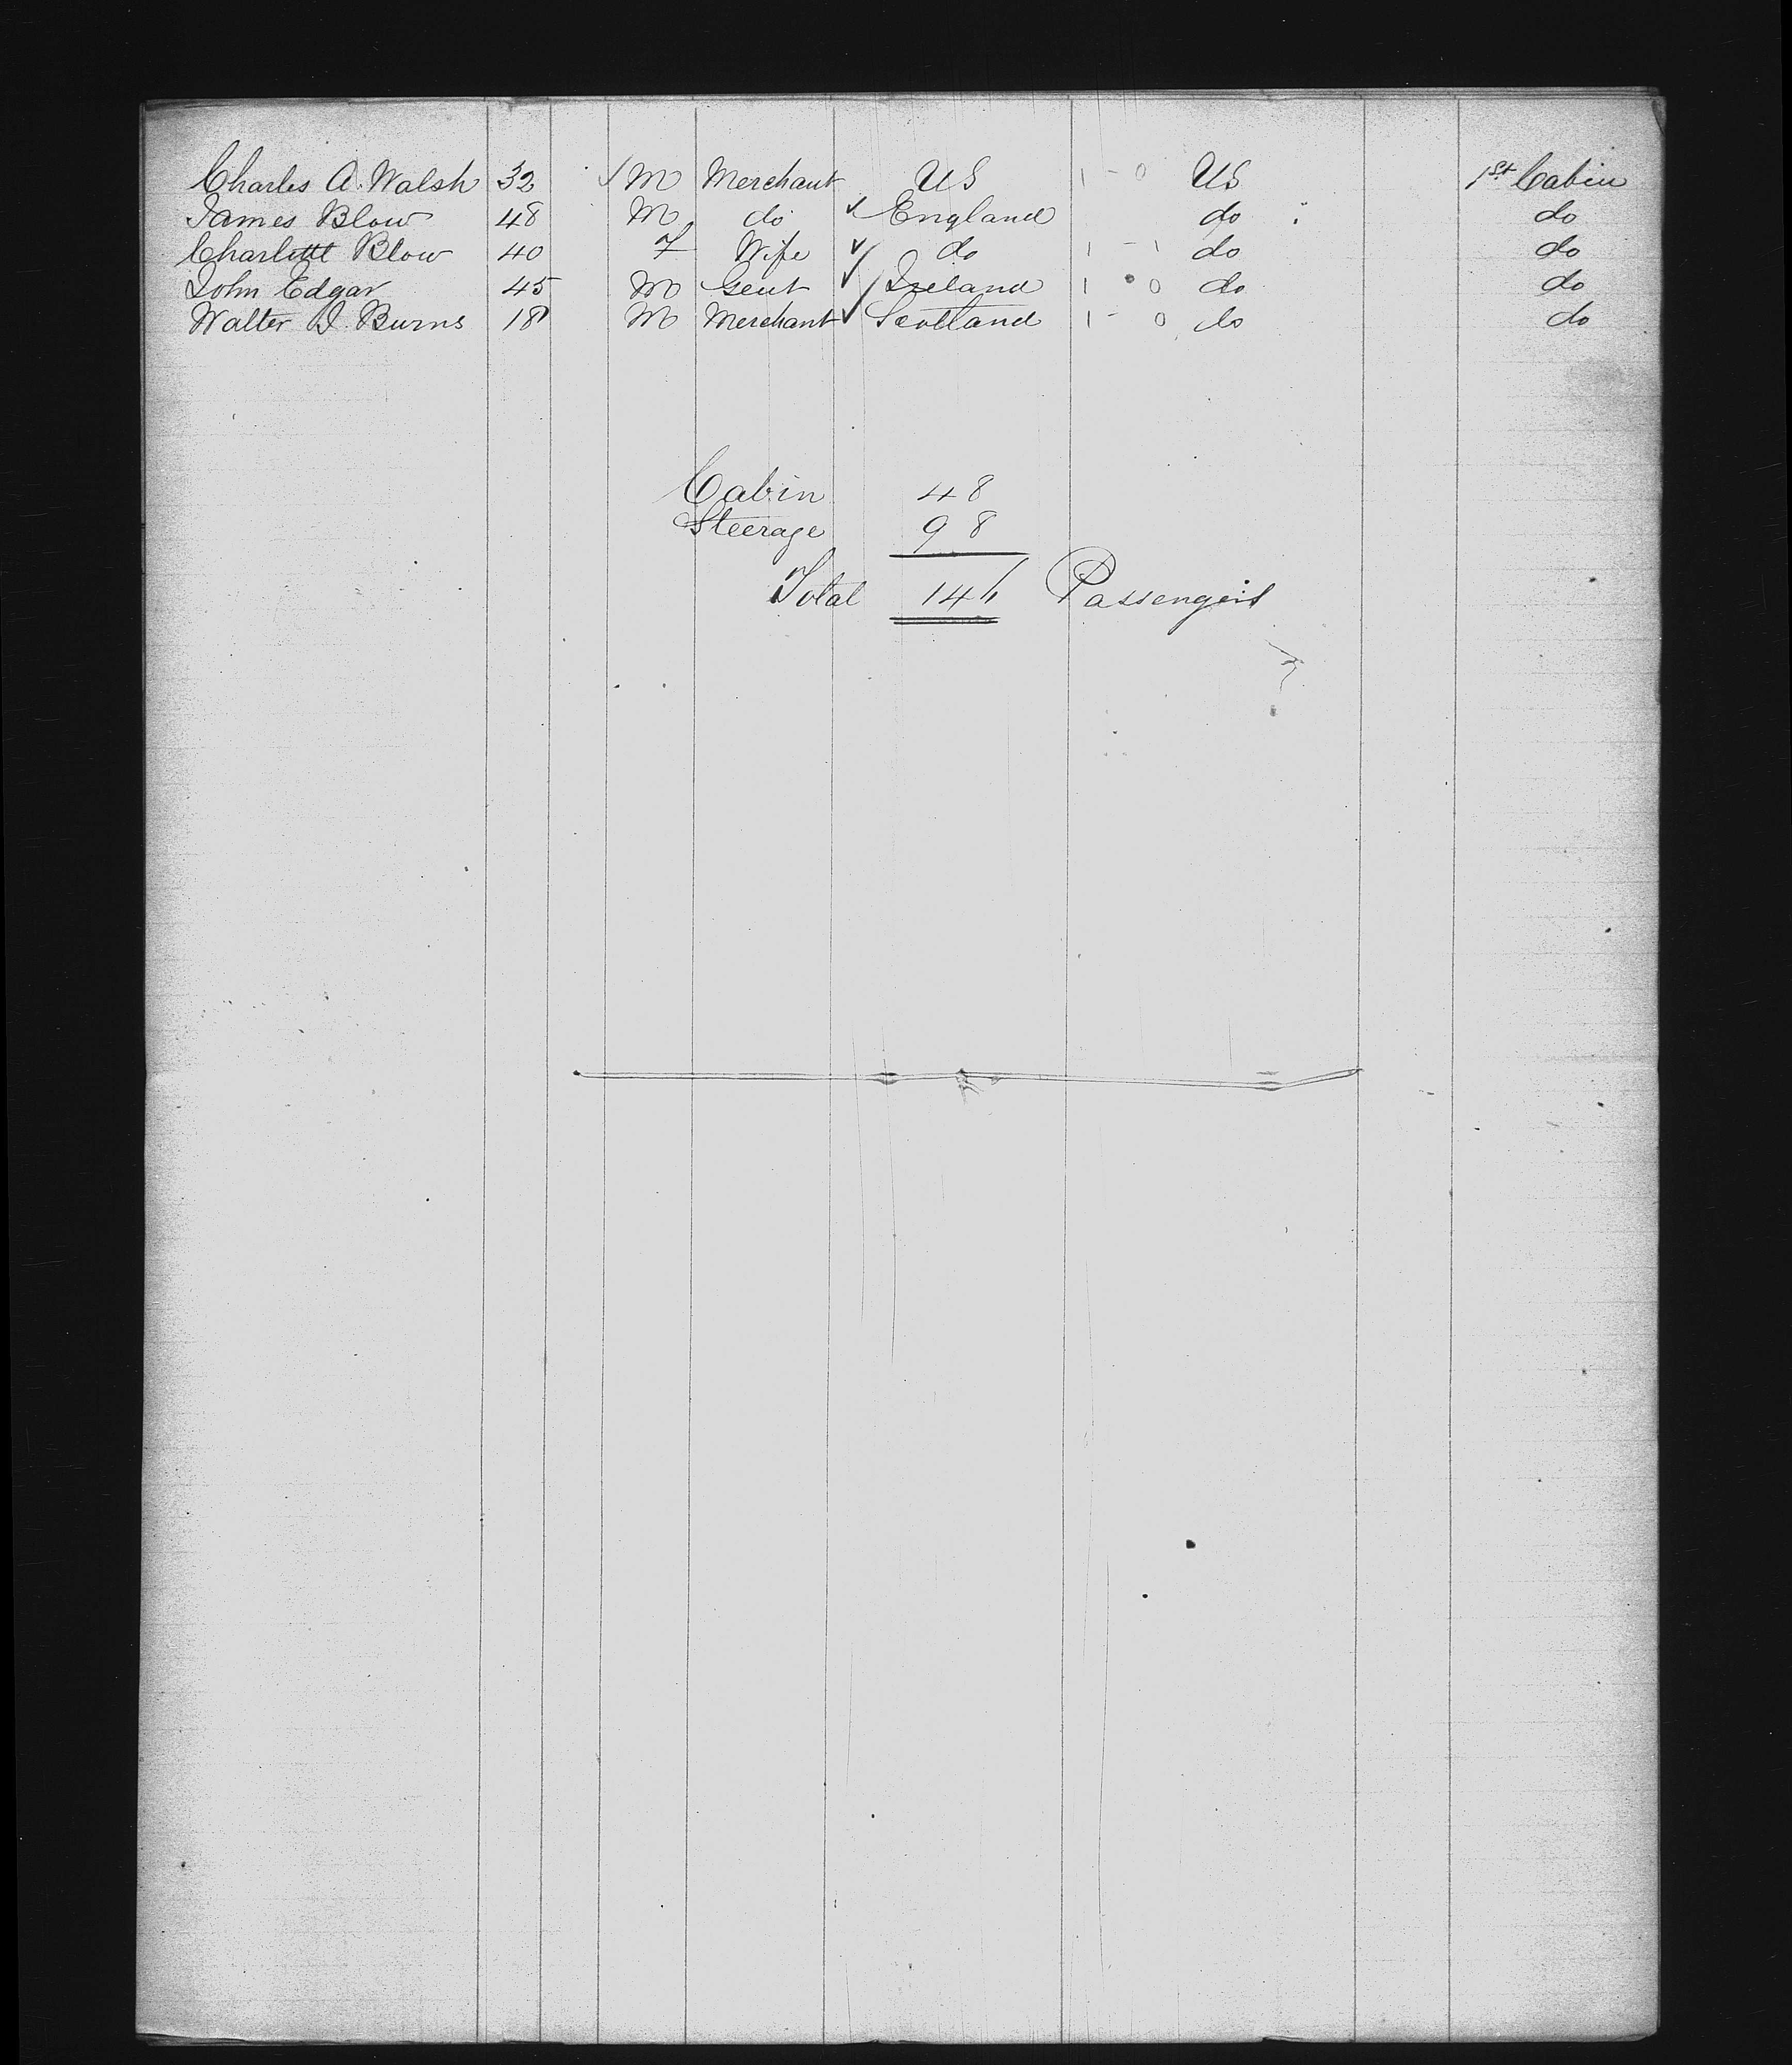 Charles A. Walsh 32 M Merchant US 1 - 0 US 1st Cabin
James Blow 48 M do England do do
Charlotte Blow 40 F Wife do 1 - 1 do do
John Edgar 45 M Gent Ireland 1 0 do do
Walter J. Burns 18 M Merchant Scotland 1 - 0 do do
Cabin 48
Steerage 98
Total 146 Passengers